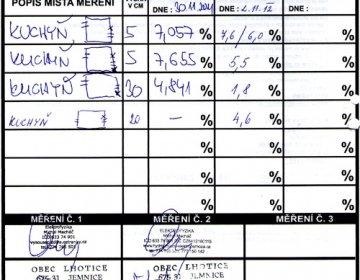 POPIS MÍSTA MĚŘENÍ V CM DNE: 30.11.2011 DNE: 2.11.12 DNE:
KUCHYŇ 5 7,057 % 7,6/6,0 % %
KUCHYŇ 5 7,655 % 5,5 % %
KUCHYŇ 30 4,841 % 1,8 % %
KUCHYŇ 20 – % 4,6 % %
% % %
% % %
MĚŘENÍ Č. 1 MĚŘENÍ Č. 2 MĚŘENÍ Č. 3
Elektrofyzika ELEKTROFYZIKA
Michal Macháč Michal Macháč
OBEC LHOTICE OBEC LHOTICE
675 31 JEMNICE 675 31 JEMNICE